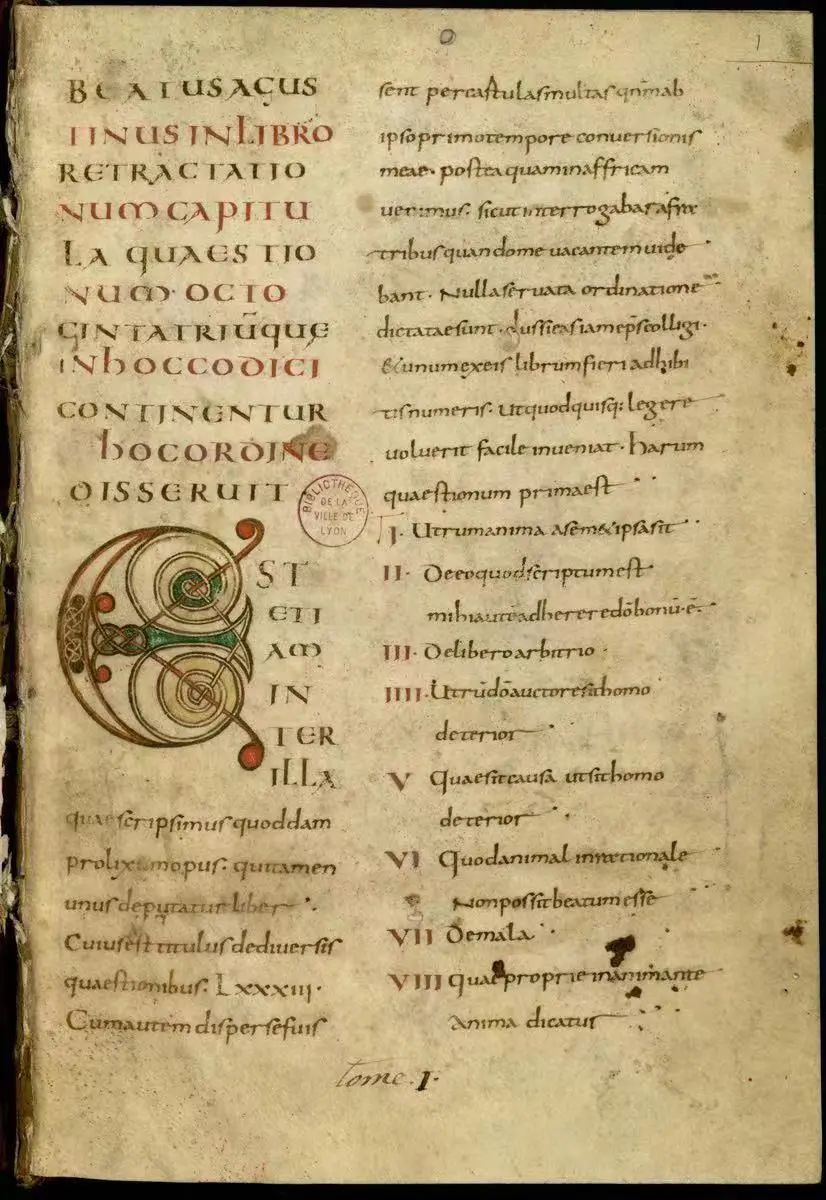 0
1
BEATUS AGUS
TINUS IN LIBRO
RETRACTATIO
NUM CAPITU
LA QUAESTIO
NUM· OCTO
GINTATRIŪQUE
INHOCCODICI
CONTINENTUR
HOCORDINE
DISSERUIT
EST
ETI
AM
IN
TER
ILLA
quae scripsimus quoddam
prolixum opus. qui tamen
unus deputatur liber
Cuius est titulus dediversis
quaestionibus. Lxxxiii·
Cum autem dispersefuis
sent percartulas multas qnm ab
ipso primo tempore conversionis
meae· postea quam in affricam
venimus. sicut interrogabar afra
tribus quando me vacantem vide
bant· Nulla servata ordinatione
dictatae sunt· Iussi eas iam eps colligi·
& unum exeis librum fieri adhibi
tis numeris. Ut quod quisq: legere
voluerit facile inveniat· Harum
quaestionum prima est
I· Utrum anima asem& ipsa sit
II· De eo quod scriptum est
mihi autē adherere dō bonū· ē·
III· De libero arbitrio·
IIII· Utrū dō auctore sit homo
deterior
V Quae sit causa ut sit homo
deterior
VI Quod animal inrationale
Non possit beatum esse
VII De mala
VIII Quae proprie in animante
Anima dicatur
BIBLIOTHEQUE
DE LA
VILLE DE
LYON
tome. 1.